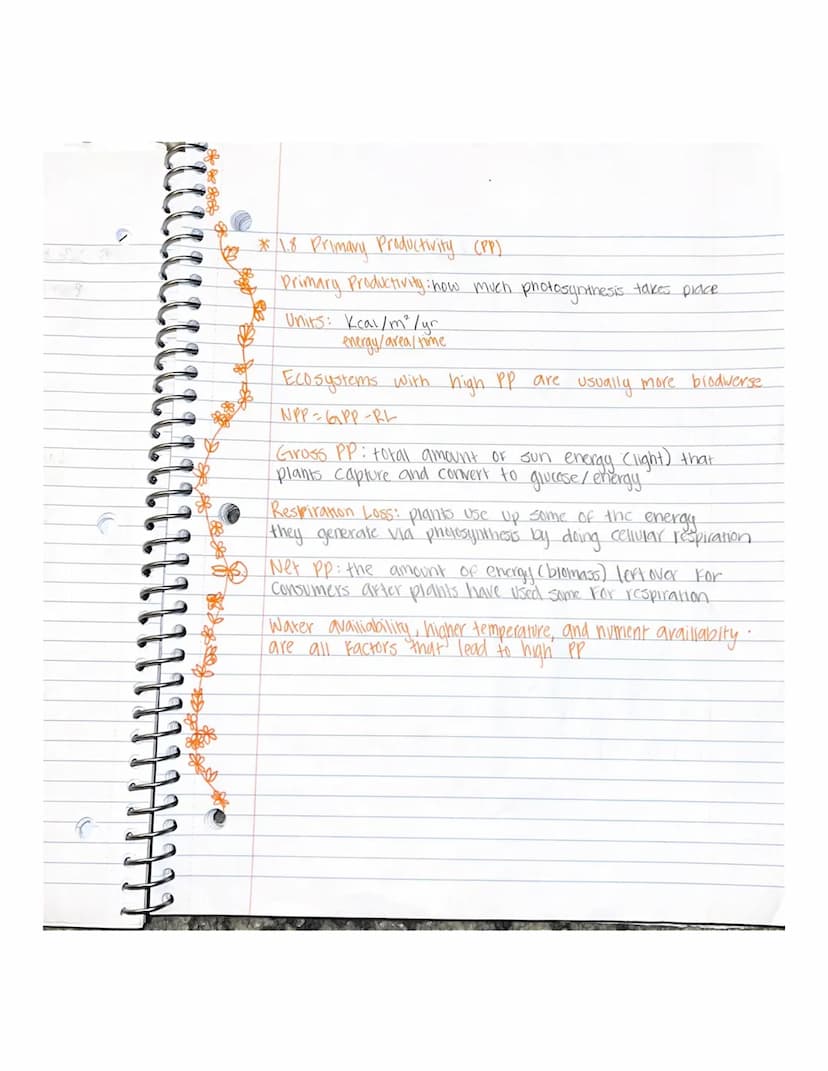 * 1.8 Primary Productivity (PP)
Primary Productivity: how much photosynthesis takes place
Units: Kcal/m²/yr
energy/area/time
Ecosystems with high PP are usually more biodiverse
NPP = GPP - RL
Gross PP: total amount of sun energy (light) that
plants capture and convert to glucose/energy
Respiration Loss: plants use up some of the energy
they generate via photosynthesis by doing cellular respiration
Net PP: the amount of energy (biomass) leftover for
consumers after plants have used some for respiration
Water availiability, higher temperature, and nutrient availiablity
are all factors that lead to high PP